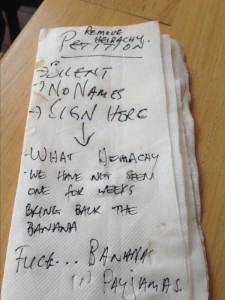 REMOVE
HEIRACHY
PETITION
→ SILENT
→ NO NAMES
→ SIGN HERE
- WHAT HEIRACHY
- WE HAVE NOT SEEN
ONE FOR WEEKS
BRING BACK THE
BANANA
FUCK... BANANAS
IN PAYJAMAS